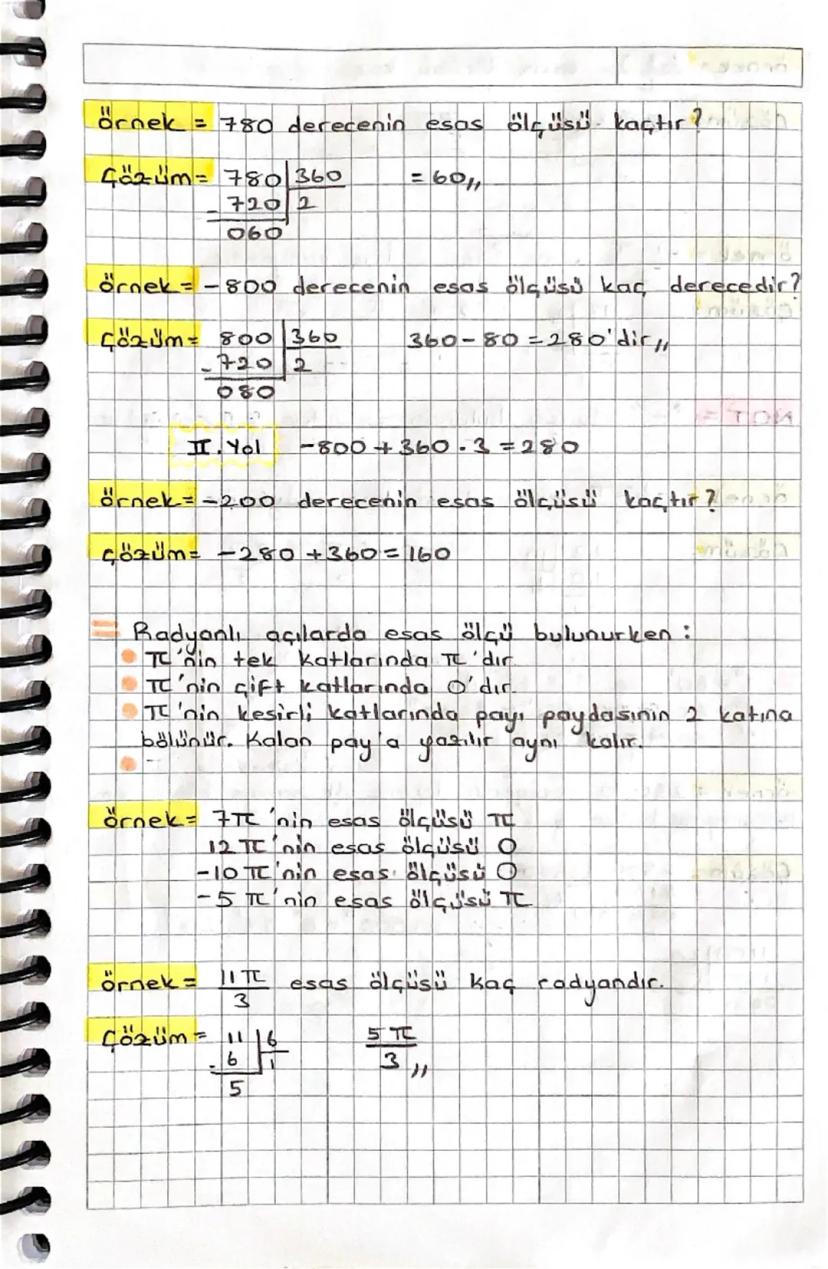 örnek = 780 derecenin esas ölçüsü kaçtır?
Çözüm = 780 360 = 60,,
- 720 2
060
örnek = -800 derecenin esas ölçüsü kaç derecedir?
Çözüm = 800 360 360 - 80 = 280'dir,,
- 720 2
080
II. Yol -800 + 360 . 3 = 280
örnek = -200 derecenin esas ölçüsü kaçtır?
Çözüm = -280 + 360 = 160
= Radyanlı açılarda esas ölçü bulunurken :
• π'nin tek katlarında π'dır.
• π'nin çift katlarında 0'dır.
• π'nin kesirli katlarında payı paydasının 2 katına
bölünür. Kalan pay'a yazılır aynı kalır.
•
örnek = 7π'nin esas ölçüsü π
12π'nin esas ölçüsü 0
-10π'nin esas ölçüsü 0
-5π'nin esas ölçüsü π
örnek = 11π/3 esas ölçüsü kaç radyandır.
Çözüm = 11 6 5π/3,,
- 6 1
5